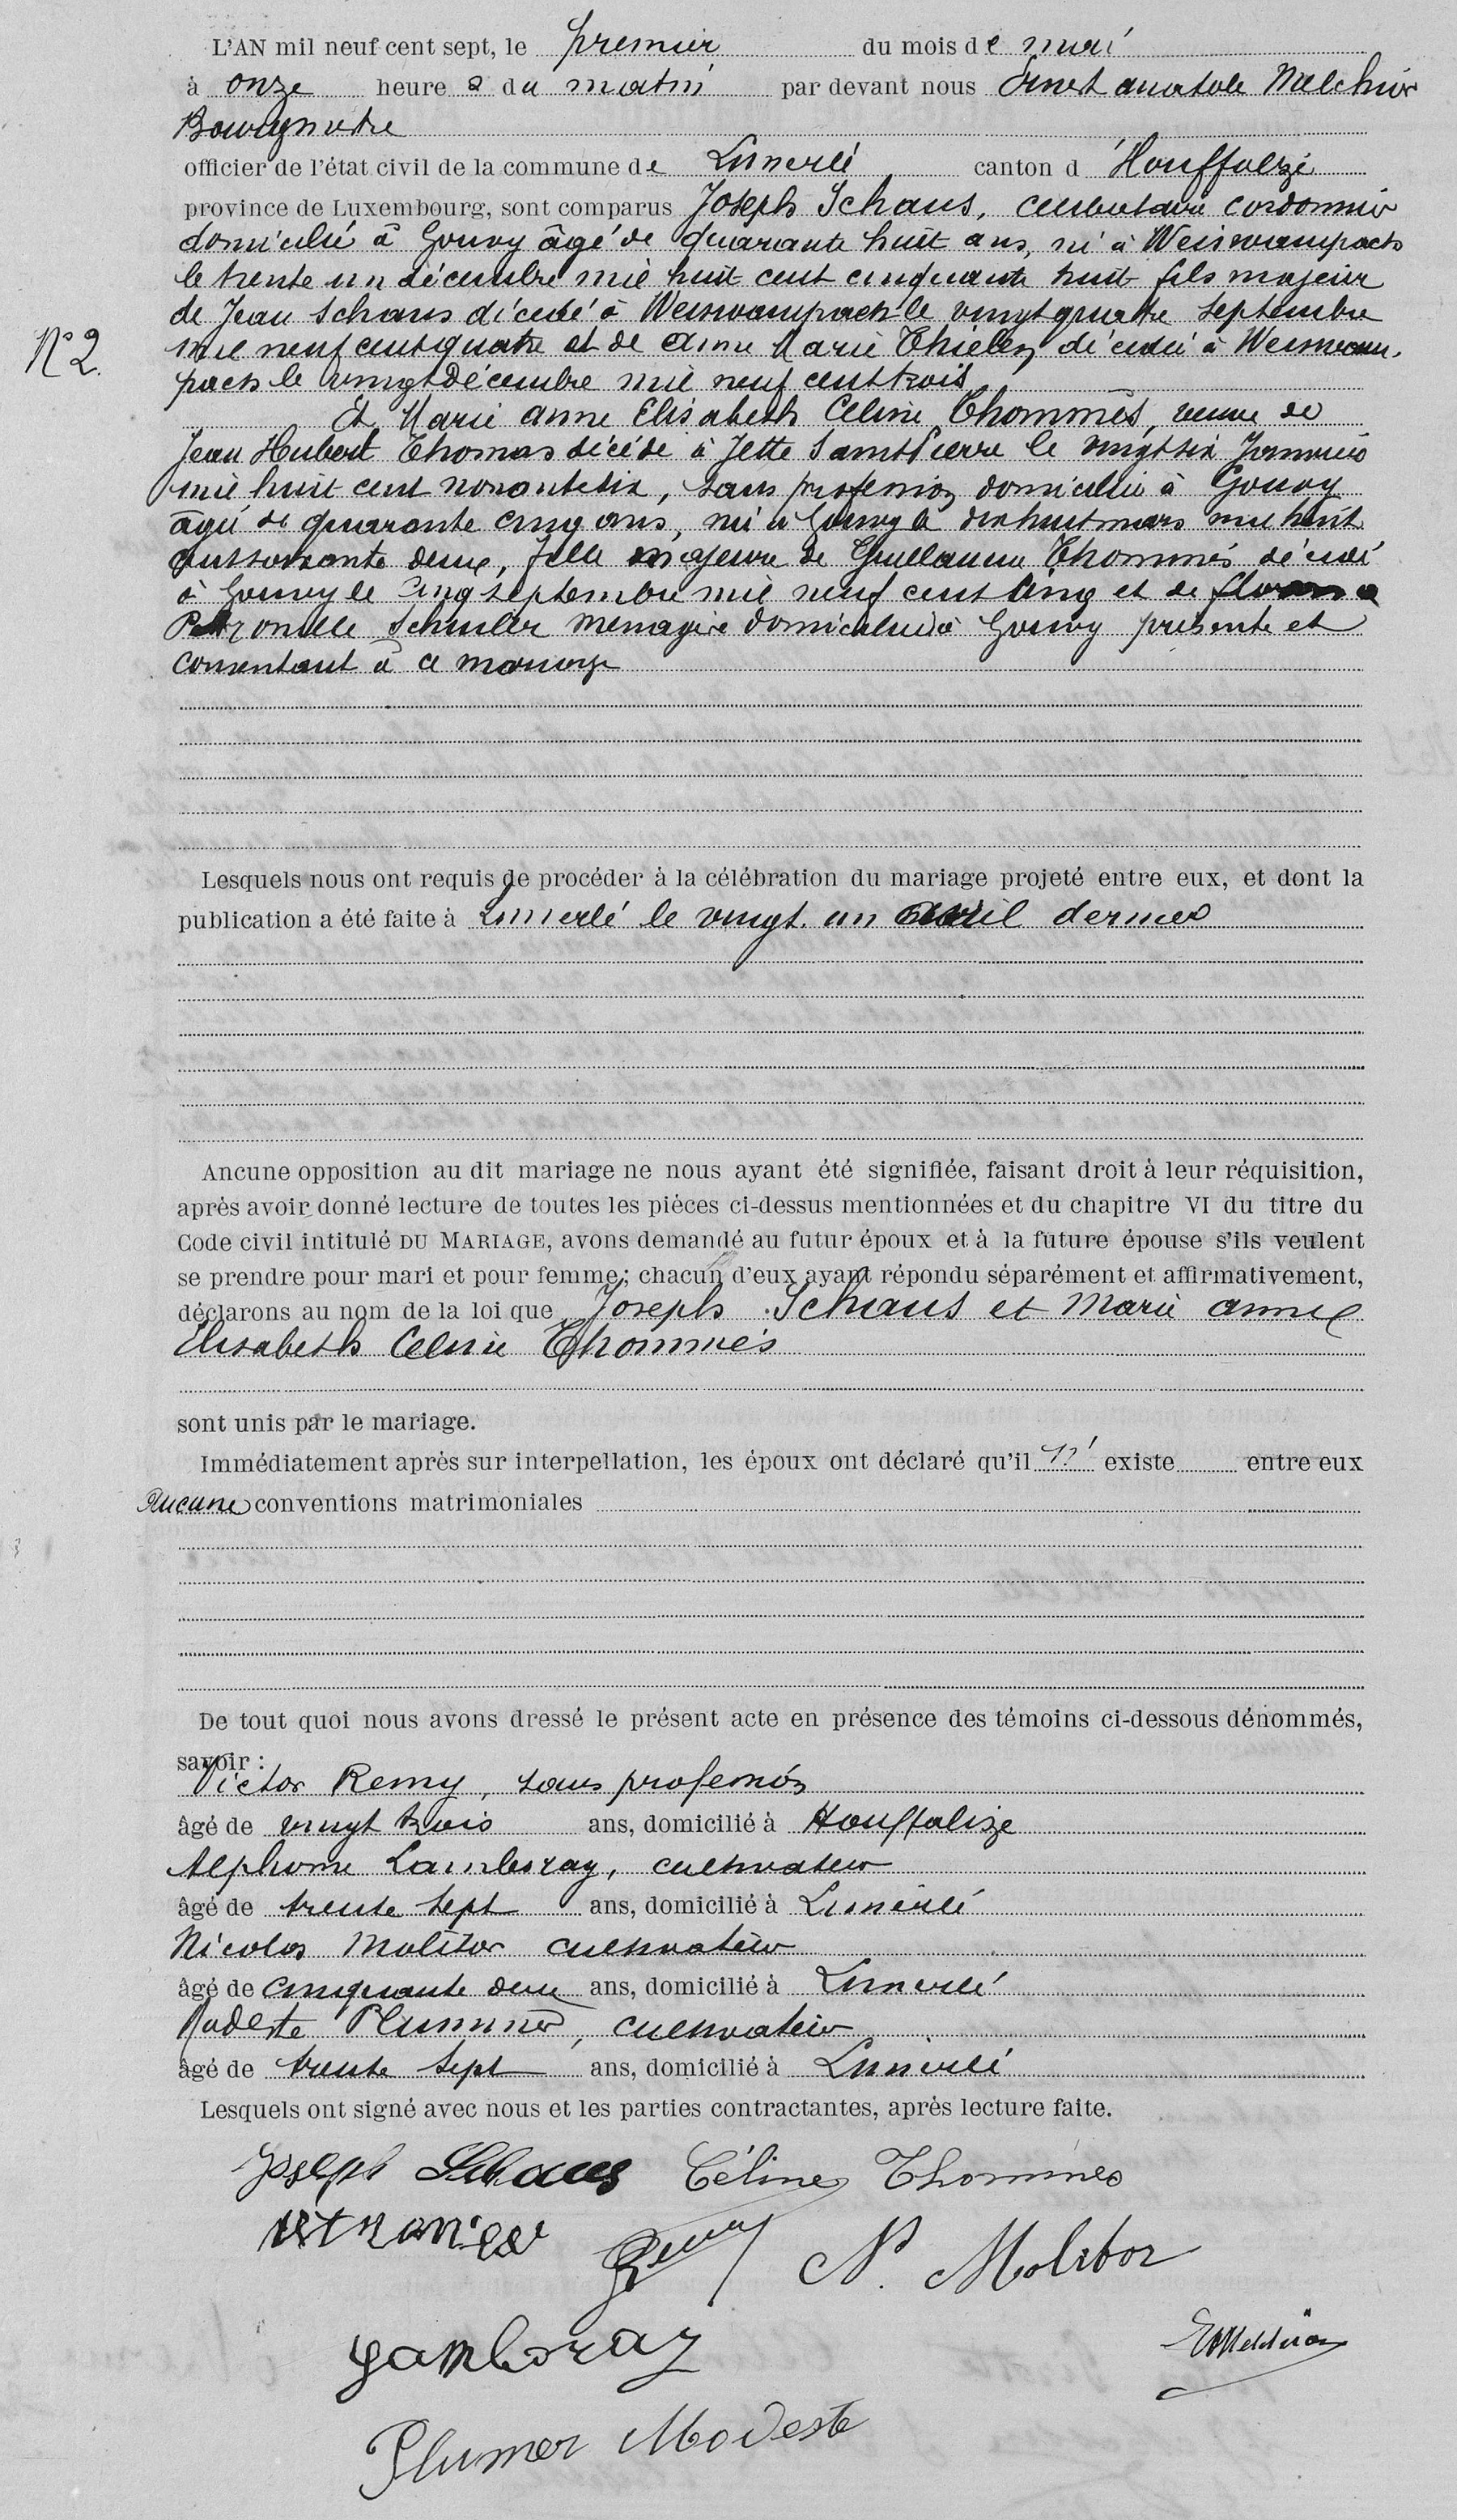 L'AN mil neuf cent sept, le premier du mois de mai
à onze heures du matin par devant nous Ernest Anatole Melchior
Bourgmestre
officier de l'état civil de la commune de Limerlé canton d'Houffalize
province de Luxembourg, sont comparus Joseph Schaus, célibataire cordonnier
domicilié à Gouvy âgé de quarante huit ans, né à Weiswampach
le trente un décembre mil huit cent cinquante huit fils majeur
de Jean Schaus décédé à Weiswampach le vingt quatre septembre
N° 2.
mil neuf cent quatre et de Anne Marie Thielen décédée à Weiswam-
pach le vingt décembre mil neuf cent trois
Et Marie Anne Elisabeth Celine Thommès, veuve de
Jean Hubert Thomas décédé à Jette Saint Pierre le vingt six Janvier
mil huit cent nonante six, sans profession domiciliée à Gouvy
âgée de quarante cinq ans, née à Gouvy le dix huit mars mil huit
cent soixante deux, fille majeure de Guillaume Thommès décédé
à Gouvy le cinq septembre mil neuf cent cinq et de
Petronille Schuller ménagère domiciliée à Gouvy présente et
consentant à ce mariage
Lesquels nous ont requis de procéder à la célébration du mariage projeté entre eux, et dont la
publication a été faite à Limerlé le vingt un avril dernier
Aucune opposition au dit mariage ne nous ayant été signifiée, faisant droit à leur réquisition,
après avoir donné lecture de toutes les pièces ci-dessus mentionnées et du chapitre VI du titre du
Code civil intitulé DU MARIAGE, avons demandé au futur époux et à la future épouse s'ils veulent
se prendre pour mari et pour femme ; chacun d'eux ayant répondu séparément et affirmativement,
déclarons au nom de la loi que Joseph Schaus et Marie Anne
Elisabeth Celine Thommès
sont unis par le mariage.
Immédiatement après sur interpellation, les époux ont déclaré qu'il n' existe entre eux
Aucune conventions matrimoniales
De tout quoi nous avons dressé le présent acte en présence des témoins ci-dessous dénommés,
savoir :
Victor Remy, sans profession
âgé de vingt trois ans, domicilié à Houffalize
Alphonse Lamboray, cultivateur
âgé de trente sept ans, domicilié à Limerlé
Nicolas Molitor cultivateur
âgé de cinquante deux ans, domicilié à Limerlé
Modeste Plummer, cultivateur
âgé de trente sept ans, domicilié à Limerlé
Lesquels ont signé avec nous et les parties contractantes, après lecture faite.
Joseph Schaus Céline Thommes
Remy N. Molitor
Lamboray EMelchior
Plumer Modeste